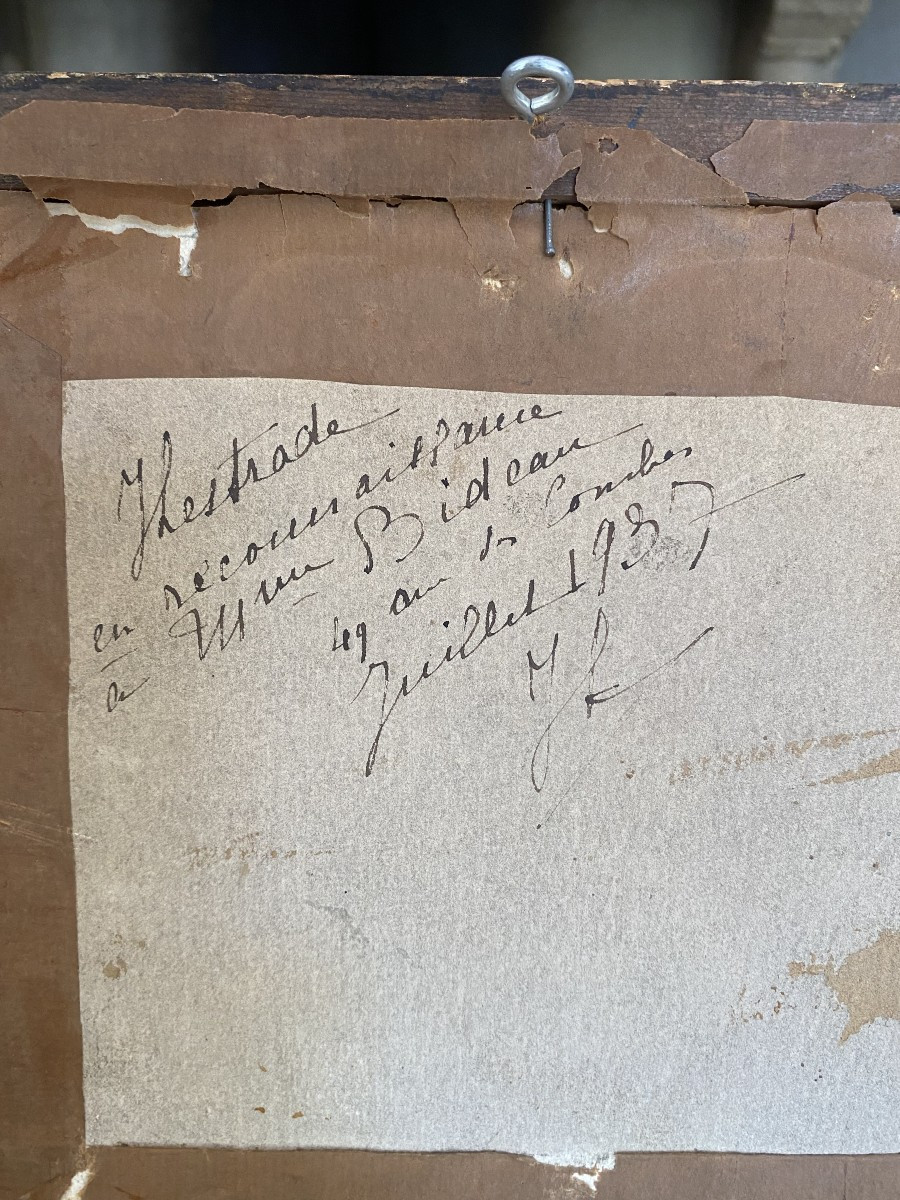 Hestrade
en reconnaissance
à Mme Bideau
49 av
Juillet 1937